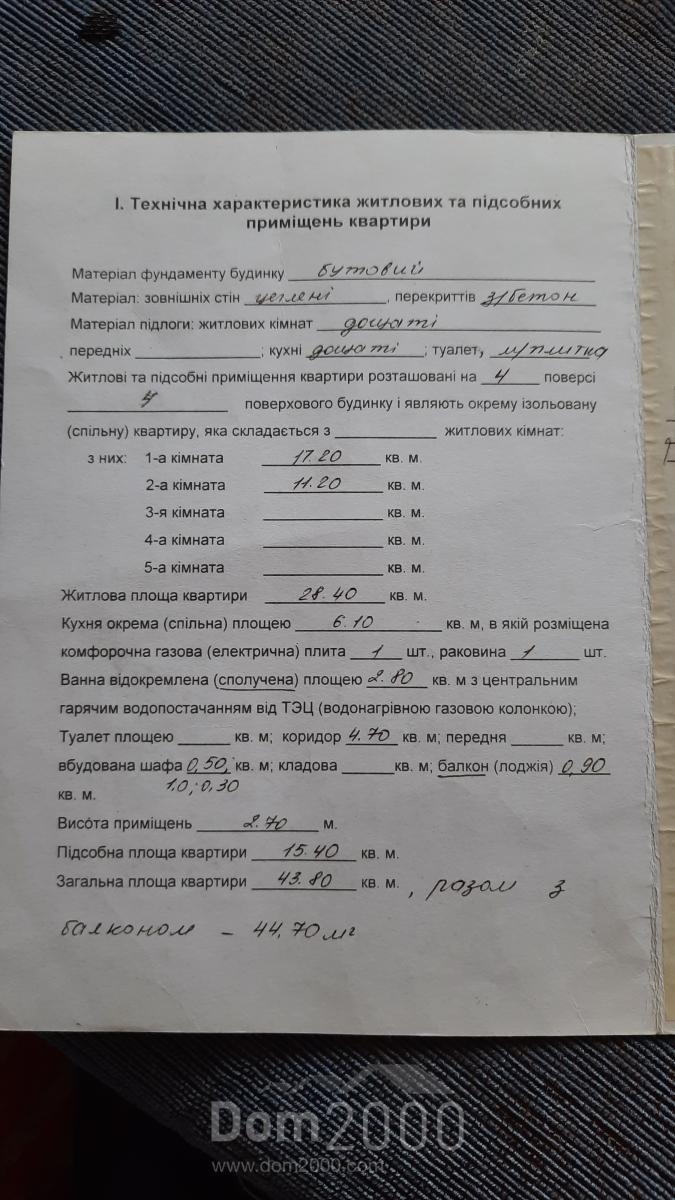 І. Технічна характеристика житлових та підсобних
приміщень квартири
Матеріал фундаменту будинку бутовий
Матеріал: зовнішніх стін цеглені, перекриттів з/бетон
Матеріал підлоги: житлових кімнат дощаті
передніх ; кухні дощаті ; туалет, м/плитка
Житлові та підсобні приміщення квартири розташовані на 4 поверсі
4 поверхового будинку і являють окрему ізольовану
(спільну) квартиру, яка складається з житлових кімнат:
з них: 1-а кімната 17.20 кв. м.
2-а кімната 11.20 кв. м.
3-я кімната кв. м.
4-а кімната кв. м.
5-а кімната кв. м.
Житлова площа квартири 28.40 кв. м.
Кухня окрема (спільна) площею 6.10 кв. м, в якій розміщена
комфорочна газова (електрична) плита 1 шт., раковина 1 шт.
Ванна відокремлена (сполучена) площею 2.80 кв. м з центральним
гарячим водопостачанням від ТЭЦ (водонагрівною газовою колонкою);
Туалет площею кв. м; коридор 4.70 кв. м; передня кв. м;
вбудована шафа 0,50, кв. м; кладова кв. м; балкон (лоджія) 0,90
кв. м. 1.0; 0,30
Висота приміщень 2.70 м.
Підсобна площа квартири 15.40 кв. м.
Загальна площа квартири 43.80 кв. м. , разом з
балконом – 44,70 м²
Dom2000
www.dom2000.com